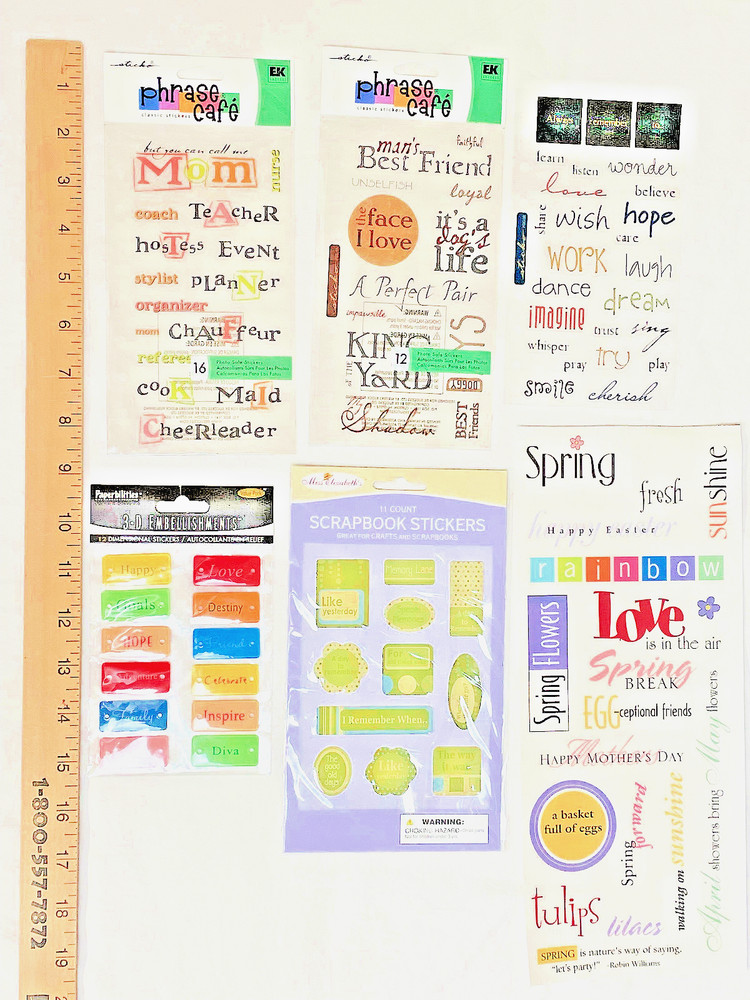 1
2
3
4
5
6
7
8
9
10
11
12
13
14
15
16
17
18
19
1-800-557-7872
sticko
EK
phrase
café
classic stickers
but you can call me
Mom
nurse
coach TeAcheR
hosTess EvenT
stylist plaNNer
organizer
mom ChauFfeur
16
Photo Safe Stickers
cooK MaId
CheeRleader
sticko
EK
phrase
café
classic stickers
man's
faithful
Best Friend
UNSELFISH
loyal
the face
I love
it's a
dog's
life
A Perfect Pair
WARNING
KING
OF THE
YaRD
12
Photo Safe Stickers
DOGGY
My
Shadow
BEST
Friends
Always
remember
to
learn
listen
wonder
love
believe
share
wish
hope
care
WORK
laugh
dance
dream
imagine
trust
sing
whisper
pray
try
play
smile
cherish
Paperbilities
3-D EMBELLISHMENTS
12 DIMENSIONAL STICKERS / AUTOCOLLANTS EN RELIEF
Happy
Love
Goals
Destiny
HOPE
Friends
Adventure
Celebrate
Family
Inspire
Diva
Miss Elizabeth's
11 COUNT
SCRAPBOOK STICKERS
GREAT FOR CRAFTS AND SCRAPBOOKS
Like
yesterday
Memory Lane
For
I Remember When...
The
good old
days
Like
The way
it was
WARNING:
CHOKING HAZARD
Spring
fresh
sunshine
Happy Easter
rainbow
Spring Flowers
Love
is in the air
Spring
BREAK
EGG-ceptional friends
HAPPY MOTHER'S DAY
a basket
full of eggs
Spring
forward
walking on sunshine
April showers bring May flowers
tulips
lilacs
SPRING is nature's way of saying,
"let's party!" -Robin Williams